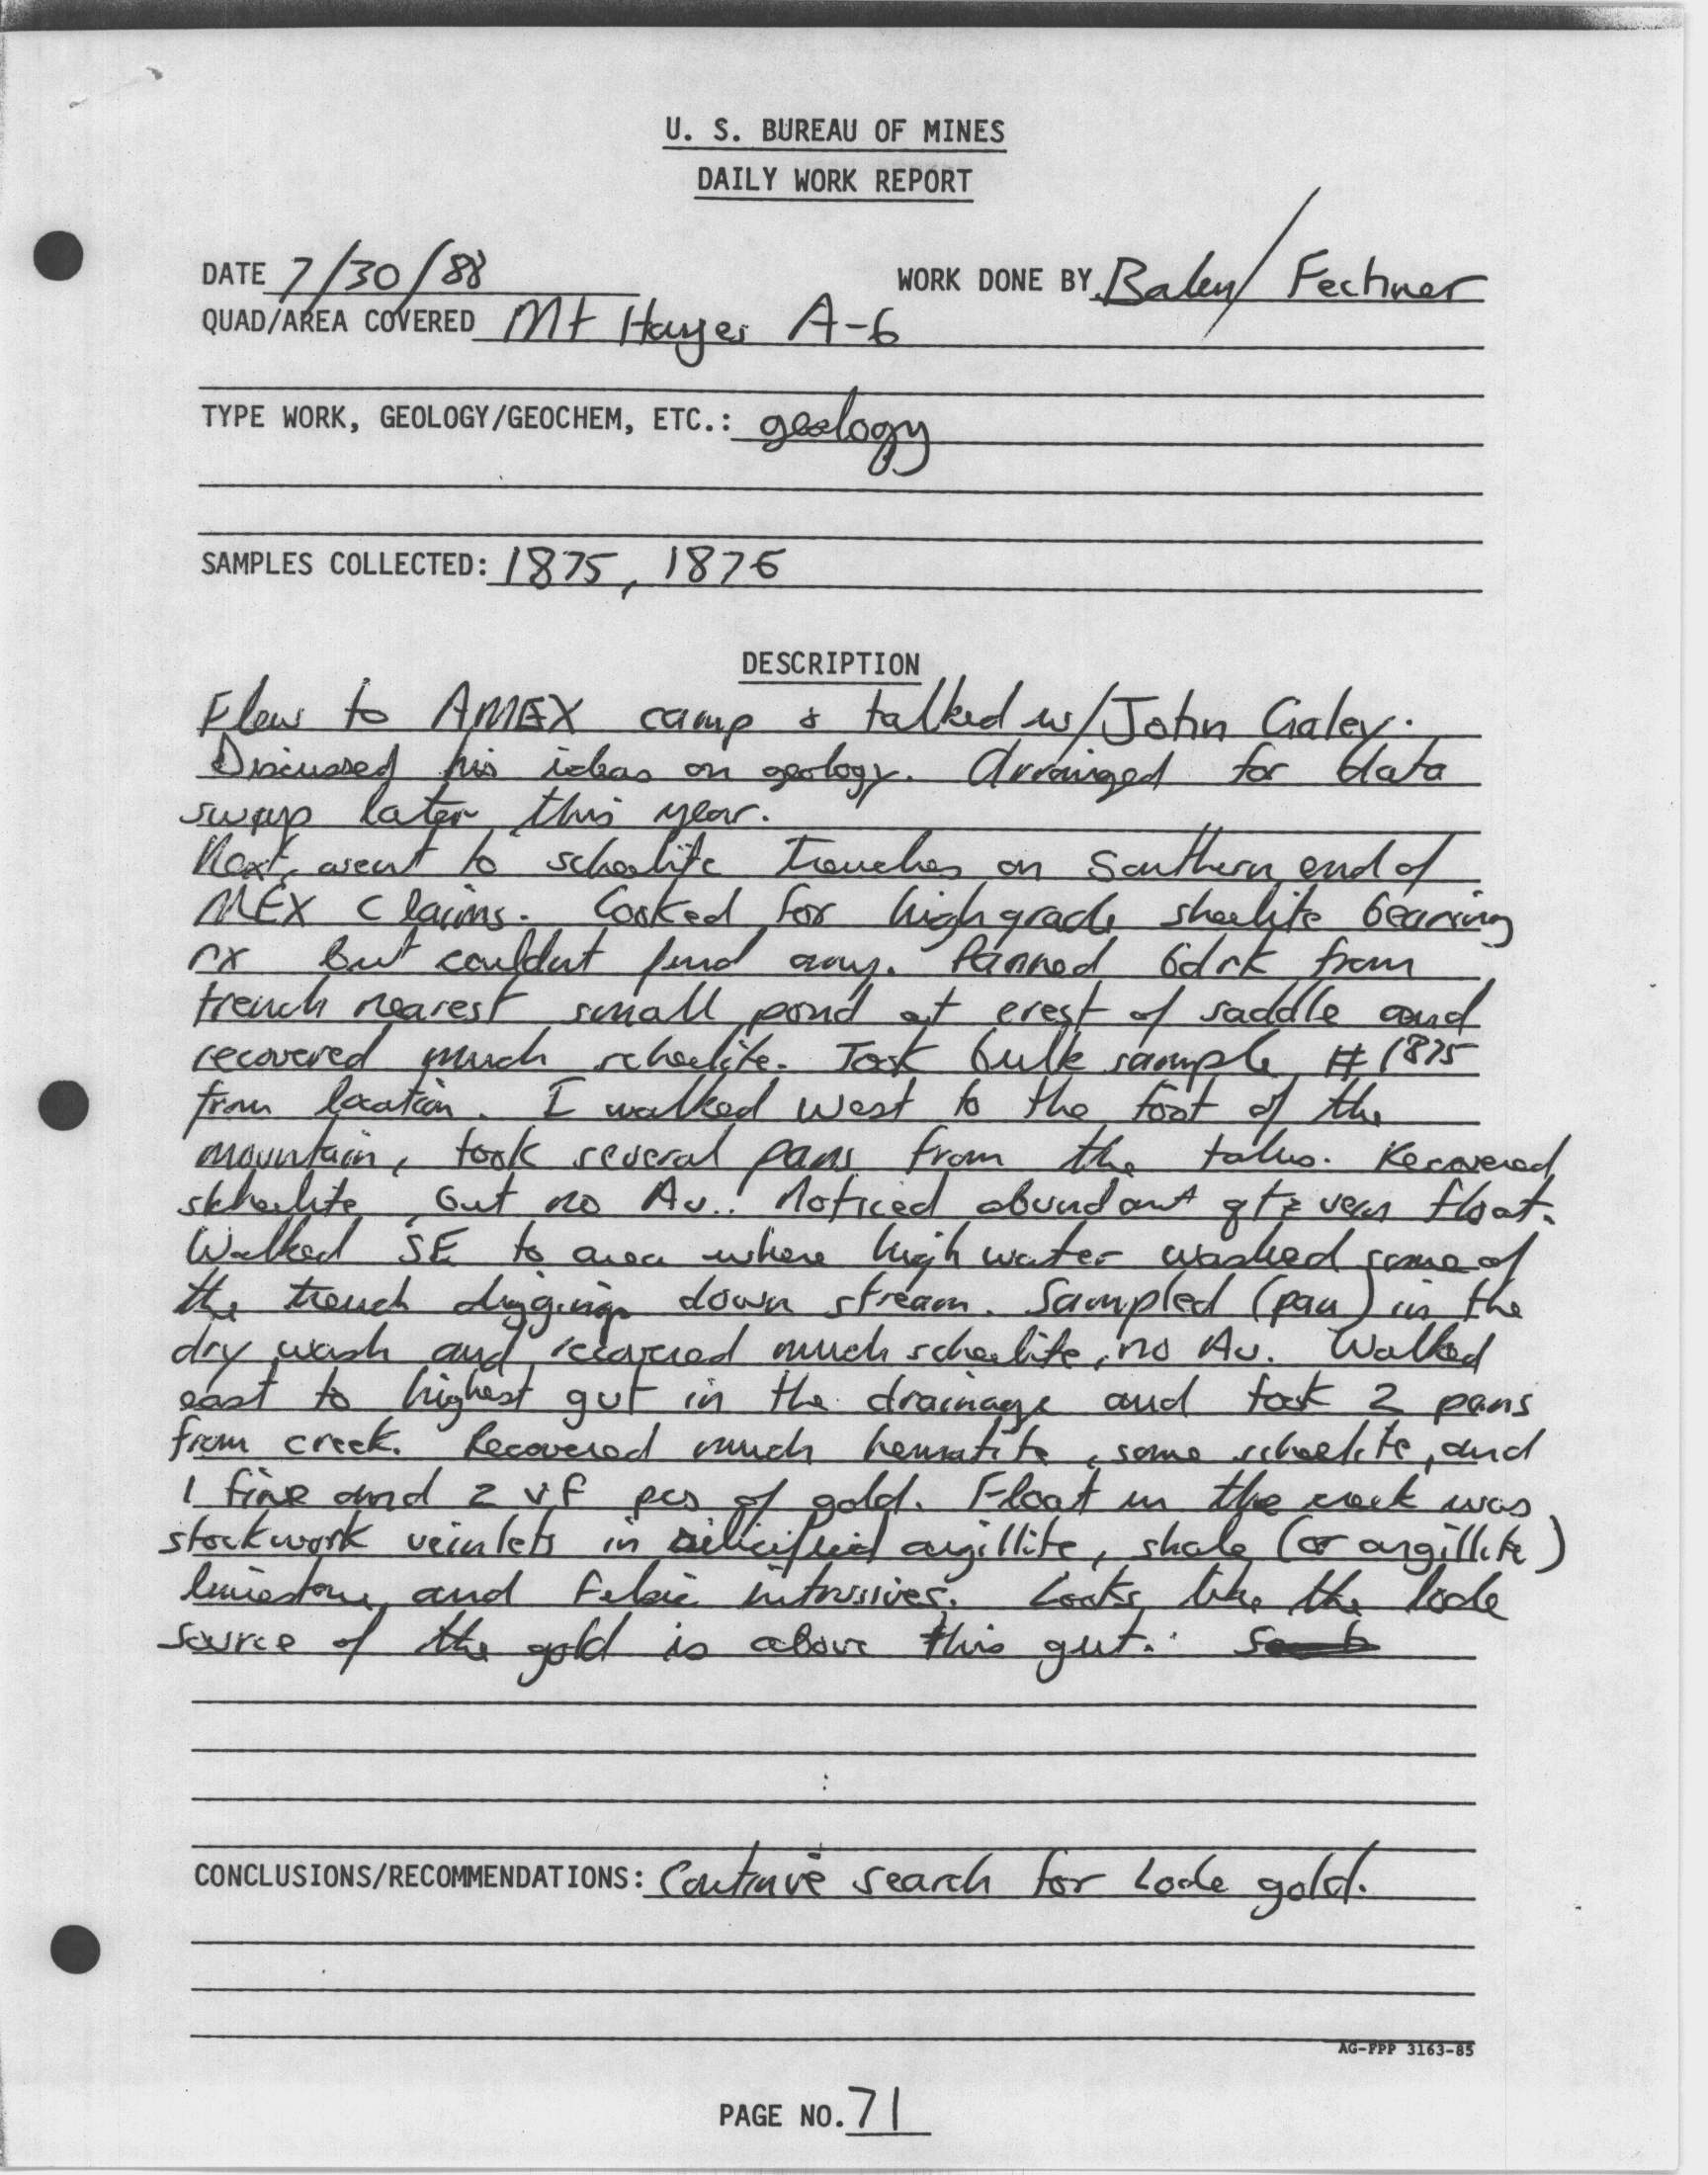 U. S. BUREAU OF MINES
DAILY WORK REPORT
DATE 7/30/88 WORK DONE BY Balen/Fechner
QUAD/AREA COVERED Mt Hayes A-6
TYPE WORK, GEOLOGY/GEOCHEM, ETC.: geology
SAMPLES COLLECTED: 1875, 1876
DESCRIPTION
Flew to AMEX camp & talked w/ John Galey.
Discussed his ideas on geology. Arrainged for data
swap later this year.
Next, went to scheelite trenches on Southern end of
MEX Claims. Looked for high grade sheelite bearing
rx but couldnt find any. Panned bdrk from
trench nearest small pond at crest of saddle and
recovered much scheelite. Took bulk sample #1875
from location. I walked west to the foot of the
mountain, took several pans from the talus. Recovered
skheelite, but no Au. Noticed abundant qtz vein float.
Walked SE to area where high water washed some of
the trench diggings down stream. Sampled (pan) in the
dry wash and recovered much scheelite, no Au. Walked
east to highest gut in the drainage and took 2 pans
from creek. Recovered much hematite, some scheelite, and
1 fine and 2 vf pcs of gold. Float in the creek was
stockwork veinlets in silicified argillite, shale (or argillite)
limestone, and felsic intrusives. Looks like the lode
source of the gold is above this gut.
CONCLUSIONS/RECOMMENDATIONS: Continue search for lode gold.
AG-FPP 3163-85
PAGE NO. 71